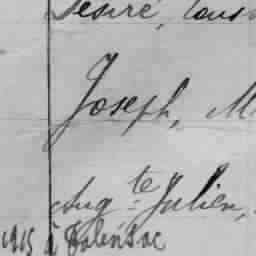 Désiré, Louis
Joseph, M
Aug.te Julien,
1915 à Talensac